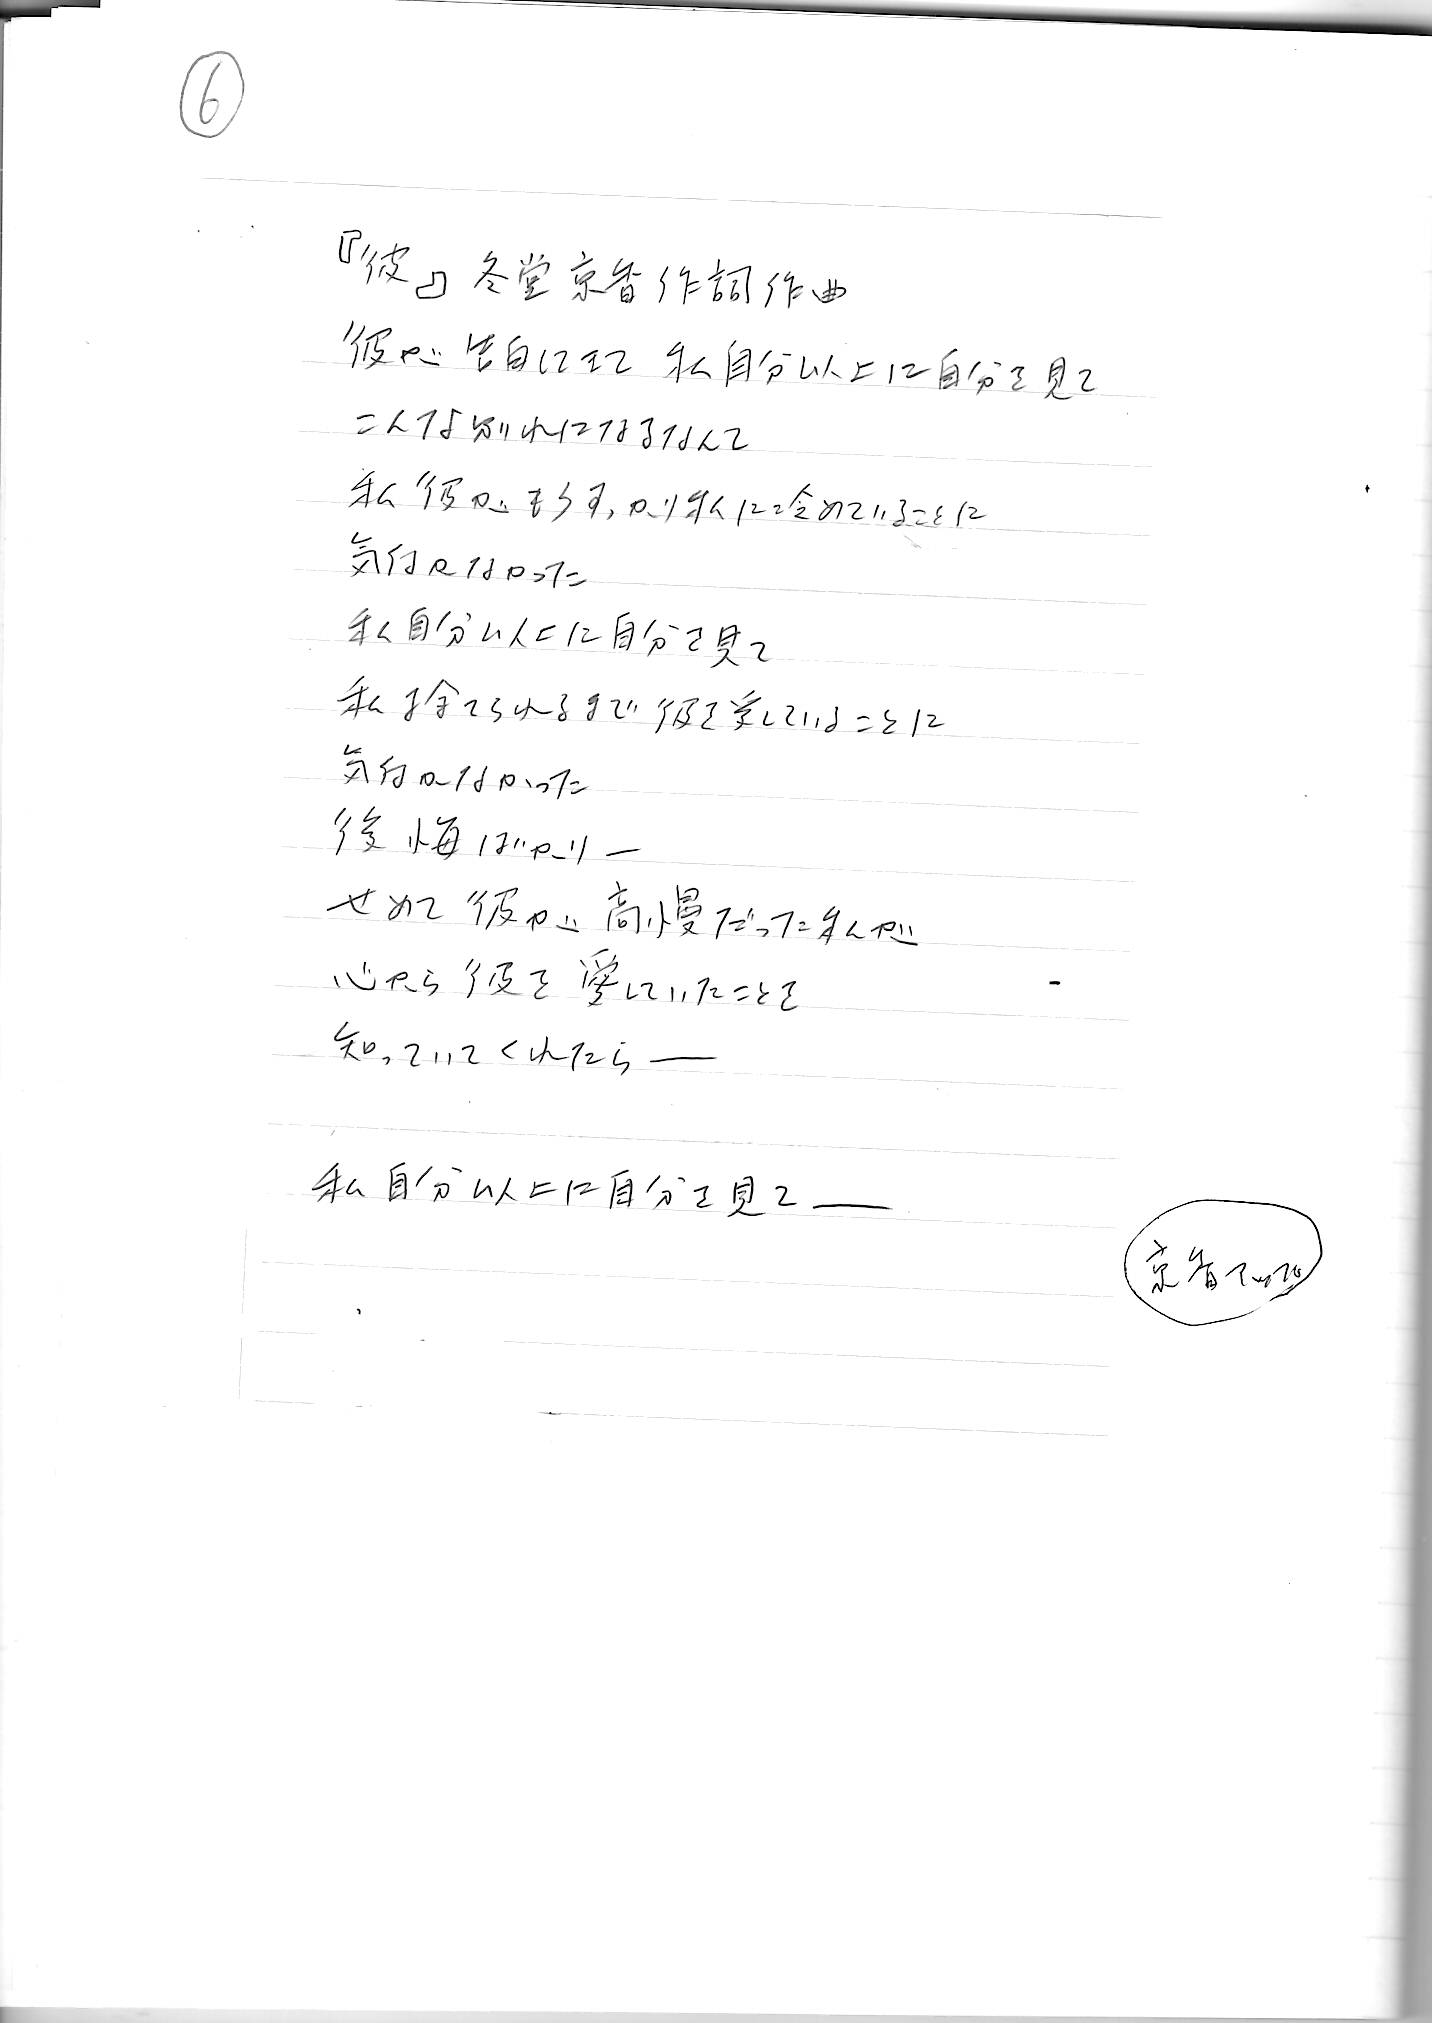 ⑥
『彼』 冬堂京香作詞作曲
彼が 告白してきて 私自分以上に自分を見て
こんな別れになるなんて
私 彼が もうすっかり私に冷めていることに
気付かなかった
私自分以上に自分を見て
私 捨てられるまで 彼を愛していることに
気付かなかった
後悔ばかり―
せめて 彼が 高慢だった私が
心から 彼を 愛していたことを
知っていてくれたら――
私 自分以上に自分を見て――
京香